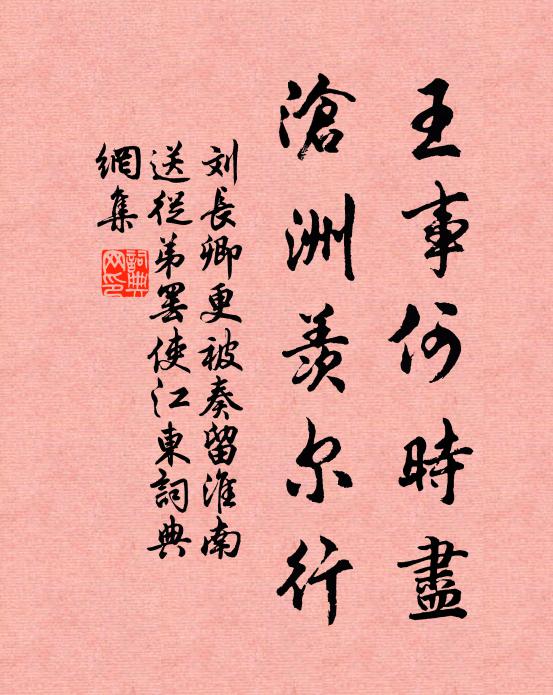 王事何時盡
滄洲羨尔行
刘長卿更被奏留淮南
送從弟罷使江東詞典
網集
詞典網印